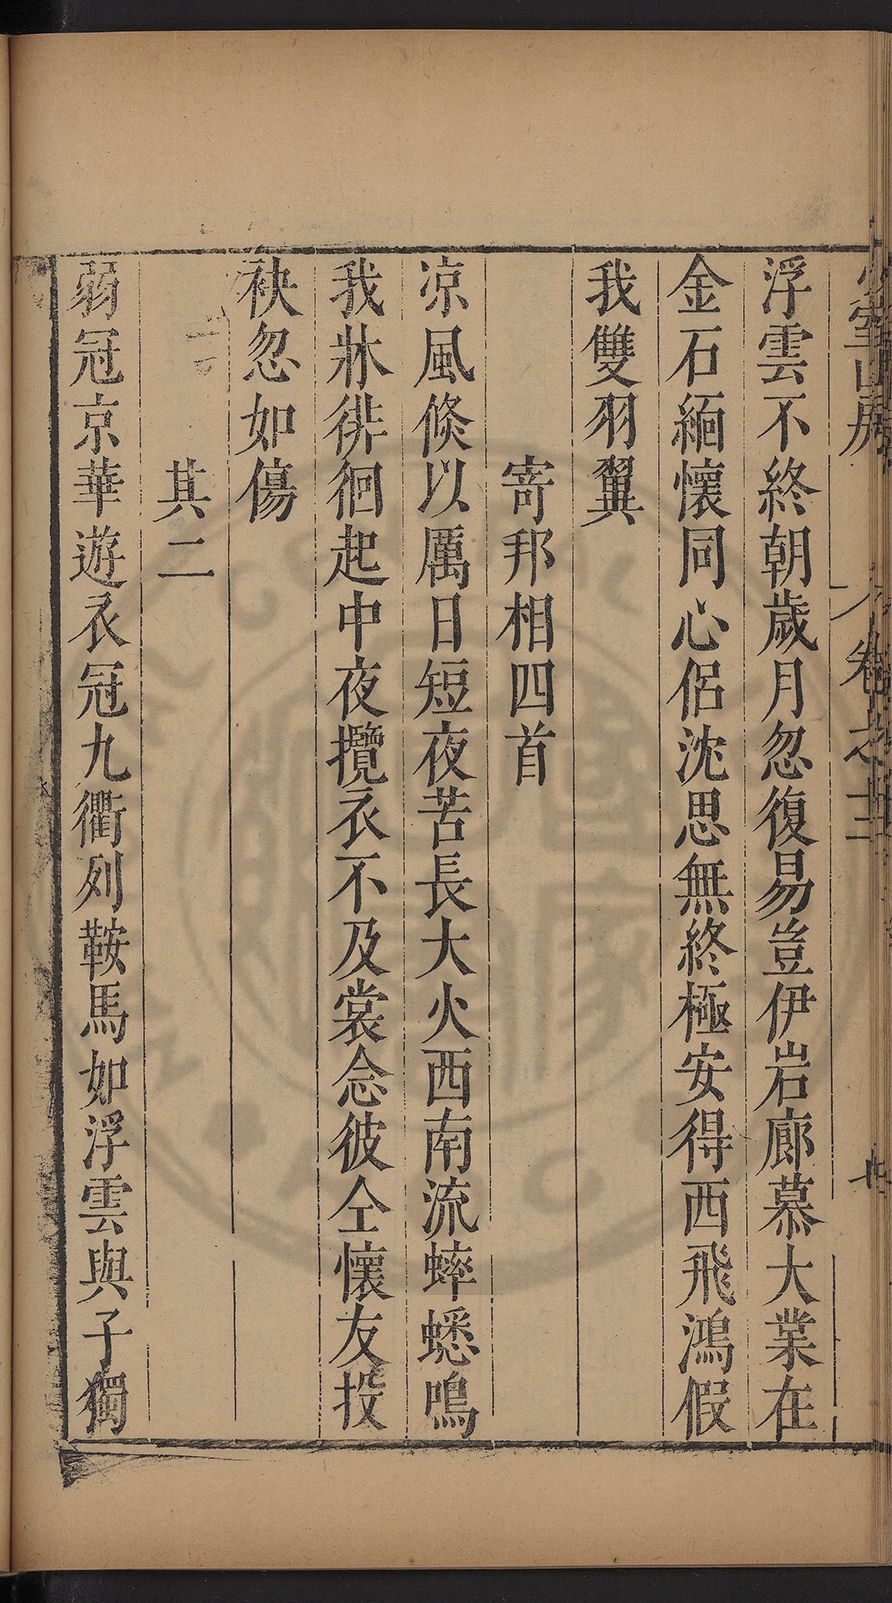 室山房 卷之
浮雲不終朝歲月忽復易豈伊岩廊慕大業在
金石緬懷同心侶沈思無終極安得西飛鴻假
我雙羽翼
寄邦相四首
凉風倐以厲日短夜苦長大火西南流蟀蟋鳴
我牀徘徊起中夜攬衣不及裳念彼仝懷友投
袂忽如傷
其二
弱冠京華遊衣冠九衢列鞍馬如浮雲與子獨